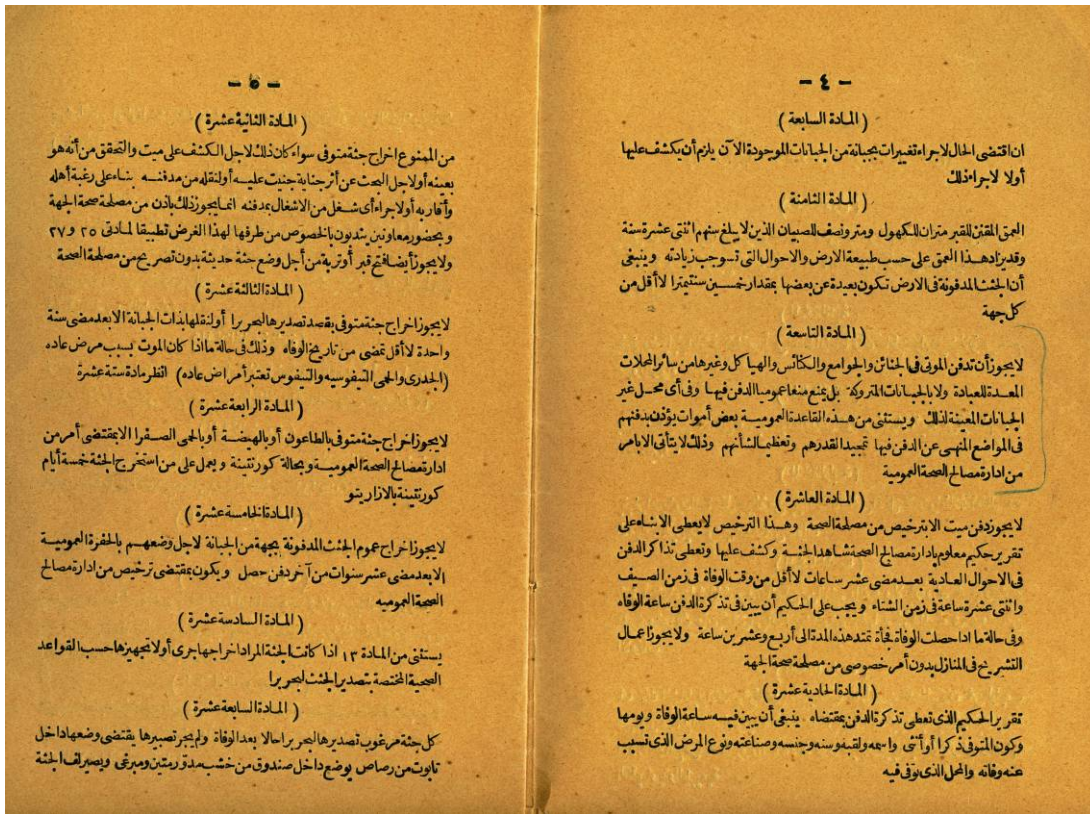 - ٤ -
( المادة السابعة )
ان اقتضى الحال لاجراء تغييرات بجبانة من الجبانات الموجودة الآن يلزم أن يكشف عليها
أولا لاجراء ذلك
( المادة الثامنة )
العمق المقنن للقبر متران للكهول ومتر ونصف للصبيان الذين لا يبلغ سنهم اثنتى عشرة سنة
وقد يزاد هذا العمق على حسب طبيعة الارض والاحوال التى تستوجب زيادته وينبغى
أن الجثث المدفونة فى الارض تكون بعيدة عن بعضها بمقدار خمسين سنتيمترا لا أقل من
كل جهة
( المادة التاسعة )
لا يجوز أن تدفن الموتى فى الجنائن والجوامع والكنائس والهياكل وغيرها من سائر المحلات
المعدة للعبادة ولا بالجبانات المتروكة بل يمنع منعا عموميا الدفن فيها وفى أى محل غير
الجبانات المعينة لذلك ويستثنى من هذه القاعدة العمومية بعض أموات يؤذن بدفنهم
فى المواضع المنهى عن الدفن فيها تمجيدا لقدرهم وتعظيما لشأنهم وذلك لا يتأتى الا بامر
من ادارة مصالح الصحة العمومية
( المادة العاشرة )
لا يجوز دفن ميت الا بترخيص من مصلحة الصحة وهذا الترخيص لا يعطى الا بناء على
تقرير حكيم معلوم بادارة مصالح الصحة شاهد الجثة وكشف عليها وتعطى تذاكر الدفن
فى الاحوال العادية بعد مضى عشر ساعات لا أقل من وقت الوفاة فى زمن الصيف
واثنتى عشرة ساعة فى زمن الشتاء ويجب على الحكيم أن يبين فى تذكرة الدفن ساعة الوفاه
وفى حالة ما اذا حصلت الوفاة فجأة تمتد هذه المدة الى أربع وعشرين ساعة ولا يجوز اعمال
التشريح فى المنازل بدون أمر خصوصى من مصلحة صحة الجهة
( المادة الحادية عشرة )
تقرير الحكيم الذى تعطى تذكرة الدفن بمقتضاه ينبغى أن يبين فيه ساعة الوفاة ويومها
وكون المتوفى ذكرا أو أنثى واسمه ولقبه وسنه وجنسه وصناعته ونوع المرض الذى تسبب
عنه وفاته والمحل الذى توفى فيه
- ٥ -
( المادة الثانية عشرة )
من الممنوع اخراج جثة متوفى سواء كان ذلك لاجل الكشف على ميت والتحقق من أنه هو
بعينه أو لاجل البحث عن أثر جناية جنيت عليه أو لنقله من مدفنه بناء على رغبة أهله
وأقاربه أو لاجراء أى شغل من الاشغال بمدفنه انما يجوز ذلك باذن من مصلحة صحة الجهة
وبحضور معاونين ينتدبون بالخصوص من طرفها لهذا الغرض تطبيقا لمادتى ٢٥ و ٢٧
ولا يجوز أيضا فتح قبر أو تربة من أجل وضع جثة حديثة بدون تصريح من مصلحة الصحة
( المادة الثالثة عشرة )
لا يجوز اخراج جثة متوفى بقصد تصديرها لبحر برا أو لنقلها بذات الجبانة الا بعد مضى سنة
واحدة لا أقل تمضى من تاريخ الوفاه وذلك فى حالة ما اذا كان الموت بسبب مرض عاده
(الجدرى والحمى التيفوسيه والتيفوس تعتبر أمراض عاده) انظر مادة ستة عشرة
( المادة الرابعة عشرة )
لا يجوز اخراج جثة متوفى بالطاعون أو بالهيضة أو بالحمى الصفرا الا بمقتضى أمر من
ادارة مصالح الصحة العمومية وبحالة كورنتينة ويعمل على من استخرج الجثة خمسة أيام
كورنتينة بالازاريتو
( المادة الخامسة عشرة )
لا يجوز اخراج عموم الجثث المدفونة بجهة من الجبانة لاجل وضعهم بالحفرة العمومية
الا بعد مضى عشر سنوات من آخر دفن حصل ويكون بمقتضى ترخيص من ادارة مصالح
الصحة العموميه
( المادة السادسة عشرة )
يستثنى من المادة ١٣ اذا كانت الجثة المراد اخراجها جرى أولا تجهيزها حسب القواعد
الصحية المختصة بتصدير الجثث لبحر برا
( المادة السابعة عشرة )
كل جثة مرغوب تصديرها لبحر برا حالا بعد الوفاة ولم يجر تصبيرها يقتضى وضعها داخل
تابوت من رصاص يوضع داخل صندوق من خشب مدقر متين ومبرغى ويصير لف الجثة